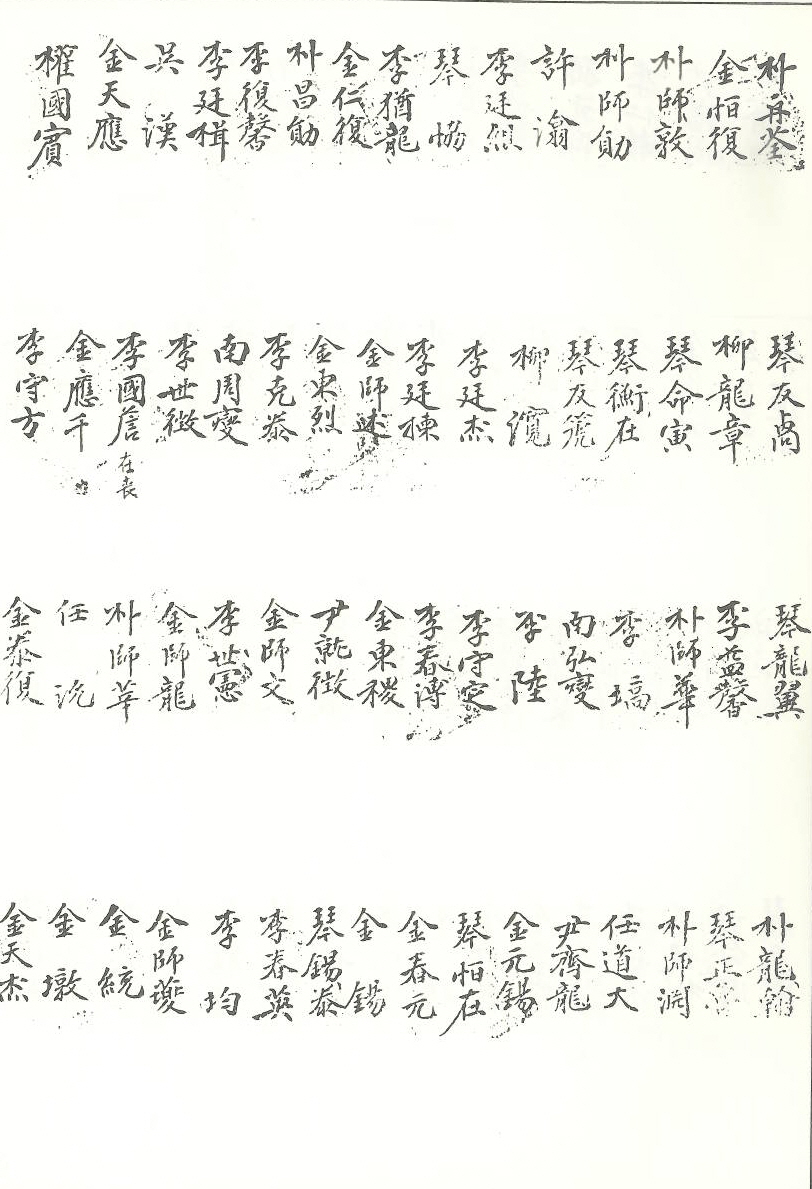 朴冄荃
金怕復
朴師敦
朴師勛
許瀹
李廷烈
琴恊
李猶龍
金仁復
朴昌勛
李復馨
李廷楫
吳漢
金天應
權國賓
琴友卨
柳龍章
琴命寅
琴衡在
琴友篪
柳濵
李廷杰
李廷揀
金師述
金東烈
李克泰
南周夒
李世徵
李國蓎 在丧
金應千
李守方
琴龍翼
李益馨
朴師華
李塙
南弘夒
李陸
李守定
李春溥
金東稷
尹就徵
金師文
李世憲
金師龍
朴師莘
任沇
金泰復
朴龍翰
琴正
朴師淵
任道大
尹齊龍
金元錫
琴怕在
金春元
金錫
琴錫泰
李春英
李均
金師夔
金統
金墩
金天杰